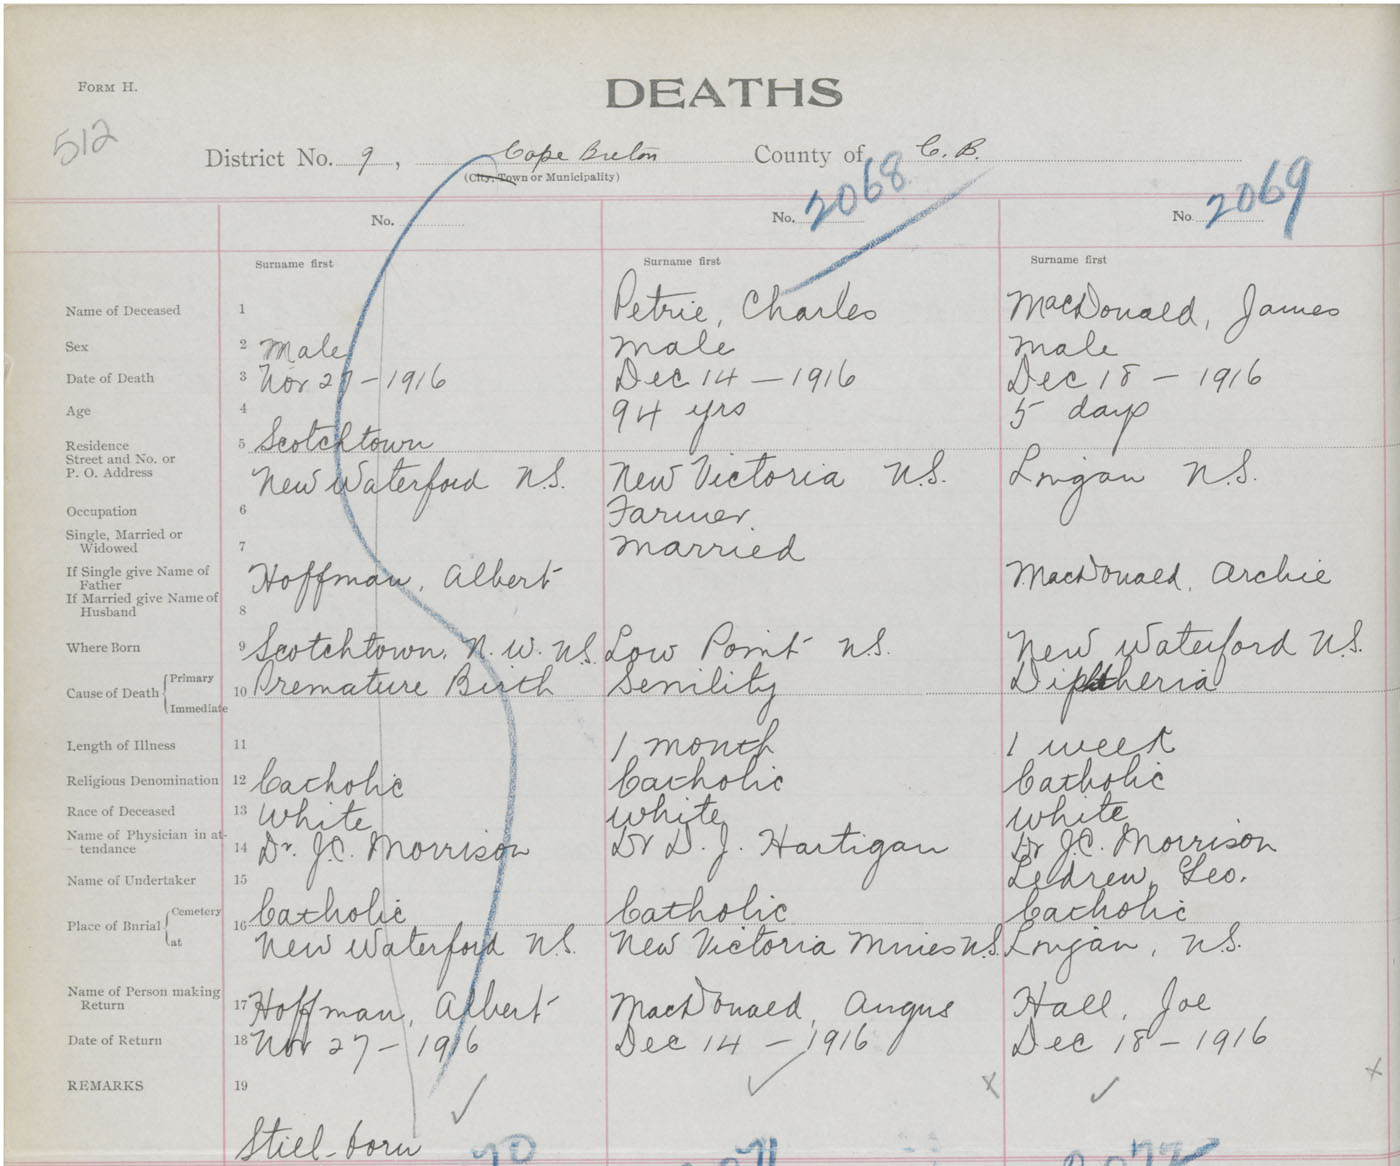 FORM H.
DEATHS
512
District No. 9, Cape Breton County of C. B.
(City, Town or Municipality)
No. No. 2068 No. 2069
Surname first Surname first Surname first
Name of Deceased 1 Petrie, Charles MacDonald, James
Sex 2 Male Male Male
Date of Death 3 Nov 27-1916 Dec 14-1916 Dec 18-1916
Age 4 94 yrs 5 days
Residence 5 Scotchtown
Street and No. or
P. O. Address New Waterford N.S. New Victoria N.S. Lingan N.S.
Occupation 6 Farmer.
Single, Married or
Widowed 7 Married
If Single give Name of
Father Hoffman, Albert MacDonald, Archie
If Married give Name of
Husband 8
Where Born 9 Scotchtown, N. W. N.S. Low Point N.S. New Waterford N.S.
Cause of Death Primary 10 Premature Birth Senility Diphtheria
Immediate
Length of Illness 11 1 month 1 week
Religious Denomination 12 Catholic Catholic Catholic
Race of Deceased 13 White White White
Name of Physician in at-
tendance 14 Dr. J.C. Morrison Dr D. J. Hartigan Dr J.C. Morrison
Name of Undertaker 15 Ledrew, Geo.
Place of Burial Cemetery 16 Catholic Catholic Catholic
at New Waterford N.S. New Victoria Mines N.S. Lingan, N.S.
Name of Person making
Return 17 Hoffman, Albert MacDonald, Angus Hall, Joe
Date of Return 18 Nov 27-1916 Dec 14-1916 Dec 18-1916
REMARKS 19
Still-born